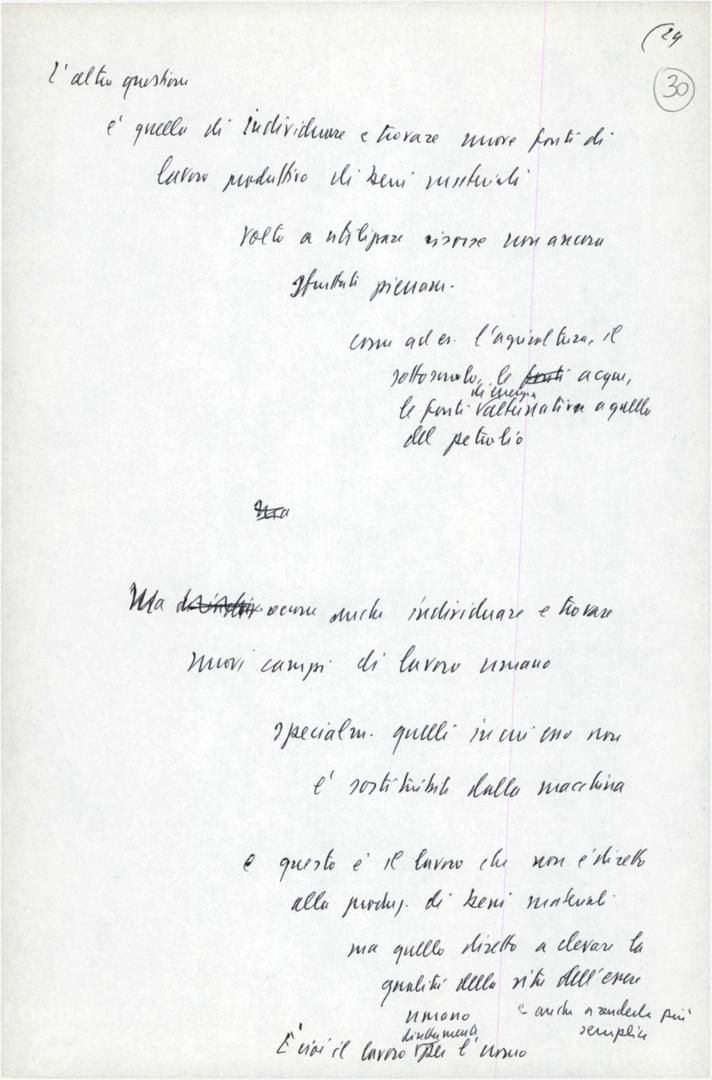 (24
30
L'altra questione
è quella di individuare e trovare nuove fonti di
lavoro produttivo di beni materiali
volto a utilizzare risorse non ancora
sfruttate pienam.
come ad es. l'agricoltura, il
sottosuolo, le fonti acque,
di energia
le fonti alternativa a quella
del petrolio
Ma
Ma occorre anche individuare e trovare
nuovi campi di lavoro umano
specialm. quelli in cui esso non
è sostituibile dalla macchina
e questo è il lavoro che non è diretto
alla produz. di beni materiali
ma quello diretto a elevare la
qualità della vita dell'essere
umano e anche a renderla più
semplice
direttamente
È cioè il lavoro per l'uomo